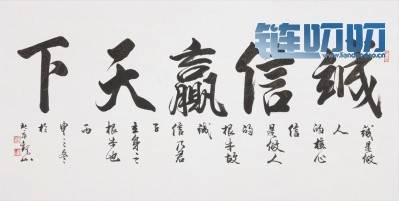 誠信赢天下
誠是做
人
的核心
信
是做人
的
根本故
誠
信乃君
子
立身之
根本也
丙
申之冬
於
链叨叨